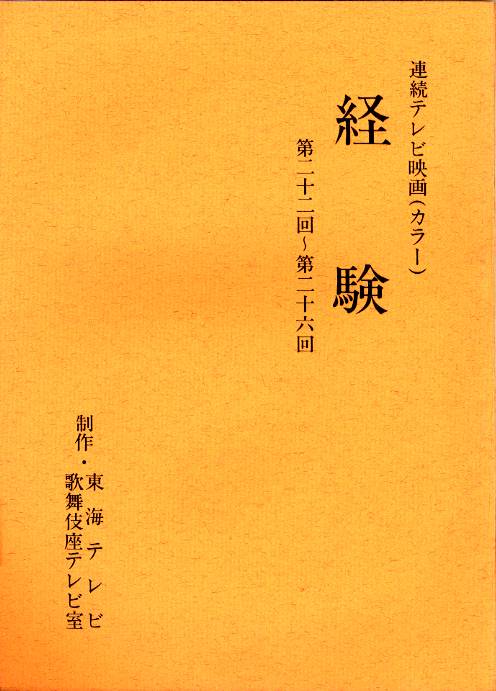 連続テレビ映画(カラー)
経験
第二十二回~第二十六回
制作・東海テレビ
歌舞伎座テレビ室